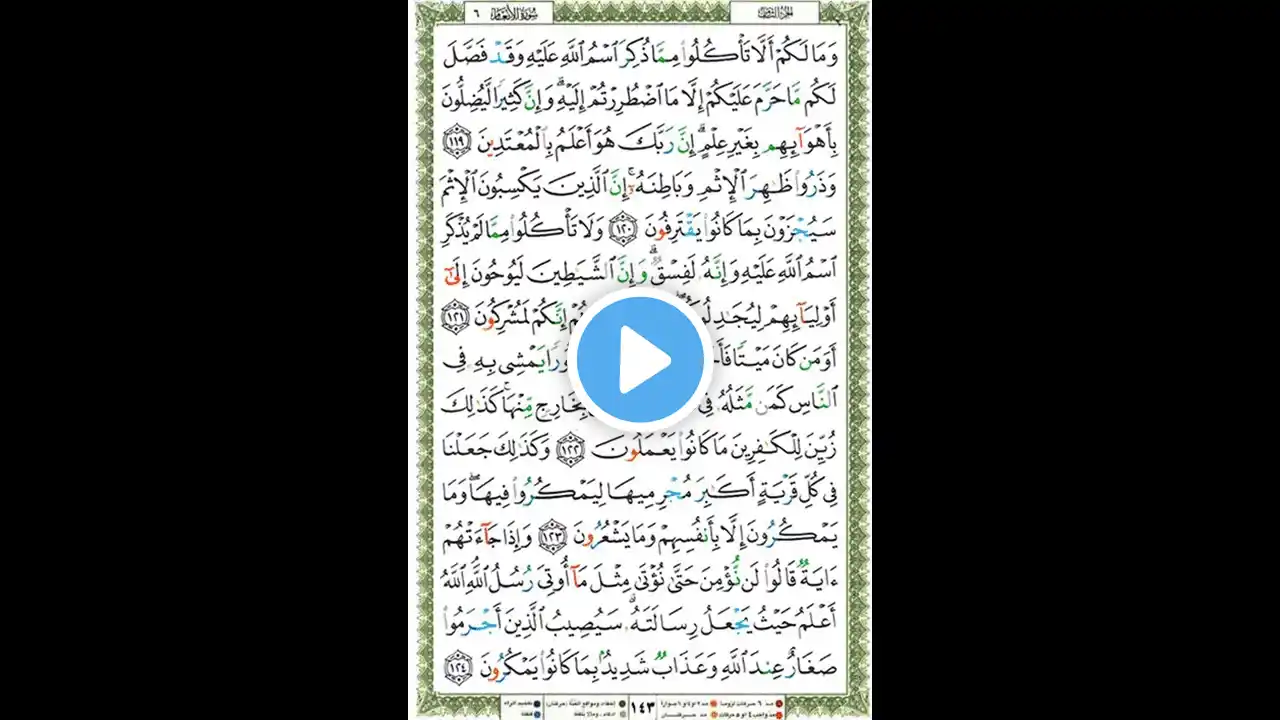 سورة الأنعام ٦
الجزء الثامن
وَمَا لَكُمْ أَلَّا تَأْكُلُوا۟ مِمَّا ذُكِرَ ٱسْمُ ٱللَّهِ عَلَيْهِ وَقَدْ فَصَّلَ
لَكُم مَّا حَرَّمَ عَلَيْكُمْ إِلَّا مَا ٱضْطُرِرْتُمْ إِلَيْهِ ۗ وَإِنَّ كَثِيرًا لَّيُضِلُّونَ
بِأَهْوَآئِهِم بِغَيْرِ عِلْمٍ ۗ إِنَّ رَبَّكَ هُوَ أَعْلَمُ بِٱلْمُعْتَدِينَ ١١٩
وَذَرُوا۟ ظَـٰهِرَ ٱلْإِثْمِ وَبَاطِنَهُۥٓ ۚ إِنَّ ٱلَّذِينَ يَكْسِبُونَ ٱلْإِثْمَ
سَيُجْزَوْنَ بِمَا كَانُوا۟ يَقْتَرِفُونَ ١٢٠ وَلَا تَأْكُلُوا۟ مِمَّا لَمْ يُذْكَرِ
ٱسْمُ ٱللَّهِ عَلَيْهِ وَإِنَّهُۥ لَفِسْقٌ ۗ وَإِنَّ ٱلشَّيَـٰطِينَ لَيُوحُونَ إِلَىٰٓ
أَوْلِيَآئِهِمْ لِيُجَـٰدِلُوكُمْ إِنَّكُمْ لَمُشْرِكُونَ ١٢١
أَوَمَن كَانَ مَيْتًا يَمْشِى بِهِۦ فِى
ٱلنَّاسِ كَمَن مَّثَلُهُۥ فِى بِخَارِجٍ مِّنْهَا ۚ كَذَٰلِكَ
زُيِّنَ لِلْكَـٰفِرِينَ مَا كَانُوا۟ يَعْمَلُونَ ١٢٢ وَكَذَٰلِكَ جَعَلْنَا
فِى كُلِّ قَرْيَةٍ أَكَـٰبِرَ مُجْرِمِيهَا لِيَمْكُرُوا۟ فِيهَا ۖ وَمَا
يَمْكُرُونَ إِلَّا بِأَنفُسِهِمْ وَمَا يَشْعُرُونَ ١٢٣ وَإِذَا جَآءَتْهُمْ
ءَايَةٌ قَالُوا۟ لَن نُّؤْمِنَ حَتَّىٰ نُؤْتَىٰ مِثْلَ مَآ أُوتِىَ رُسُلُ ٱللَّهِ ۘ ٱللَّهُ
أَعْلَمُ حَيْثُ يَجْعَلُ رِسَالَتَهُۥ ۗ سَيُصِيبُ ٱلَّذِينَ أَجْرَمُوا۟
صَغَارٌ عِندَ ٱللَّهِ وَعَذَابٌ شَدِيدٌۢ بِمَا كَانُوا۟ يَمْكُرُونَ ١٢٤
١٤٣